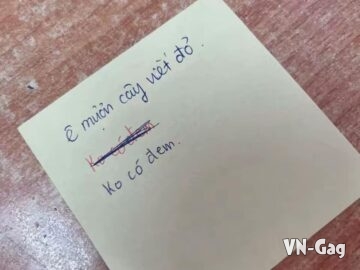 ê mượn cây viết đỏ.
Ko có đem
Ko có đem.
VN-Gag